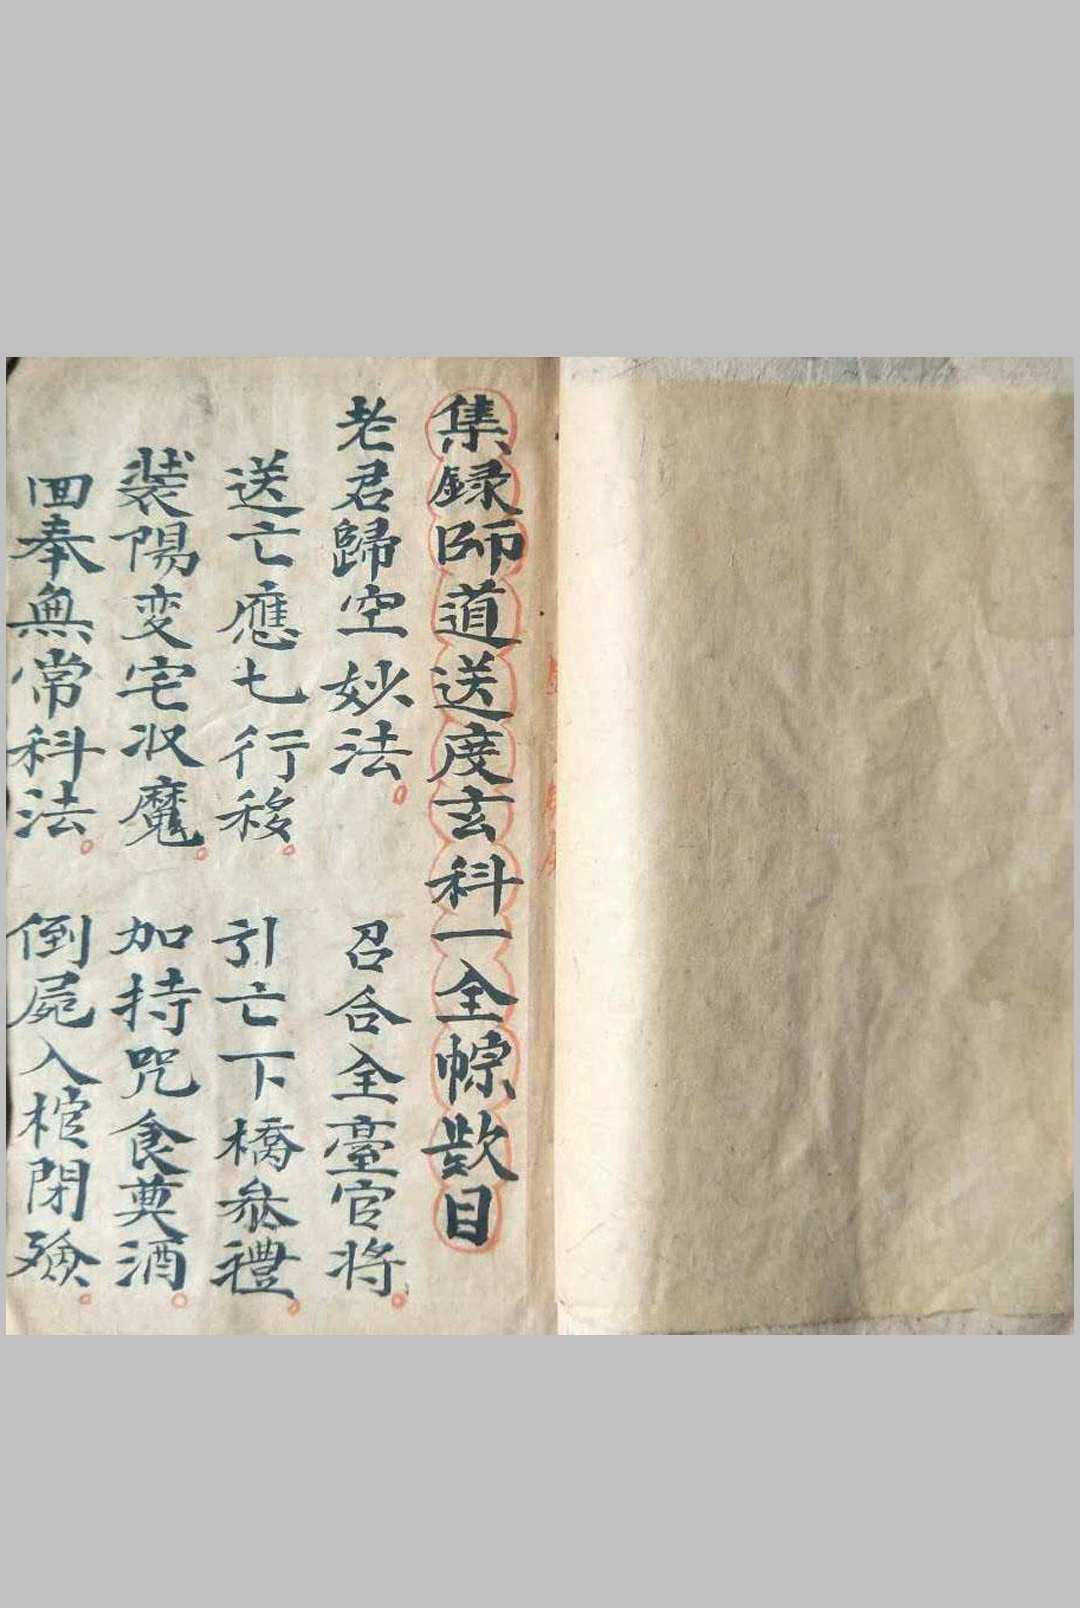 集録師道送度玄科一全幛欵目
老君歸空妙法。 召合全臺官將。
送亡應七行移。 引亡下橋叅禮。
裝陽変宅汃魔。 加持咒食奠酒。
回奉無常科法。 倒屍入棺閉殮。